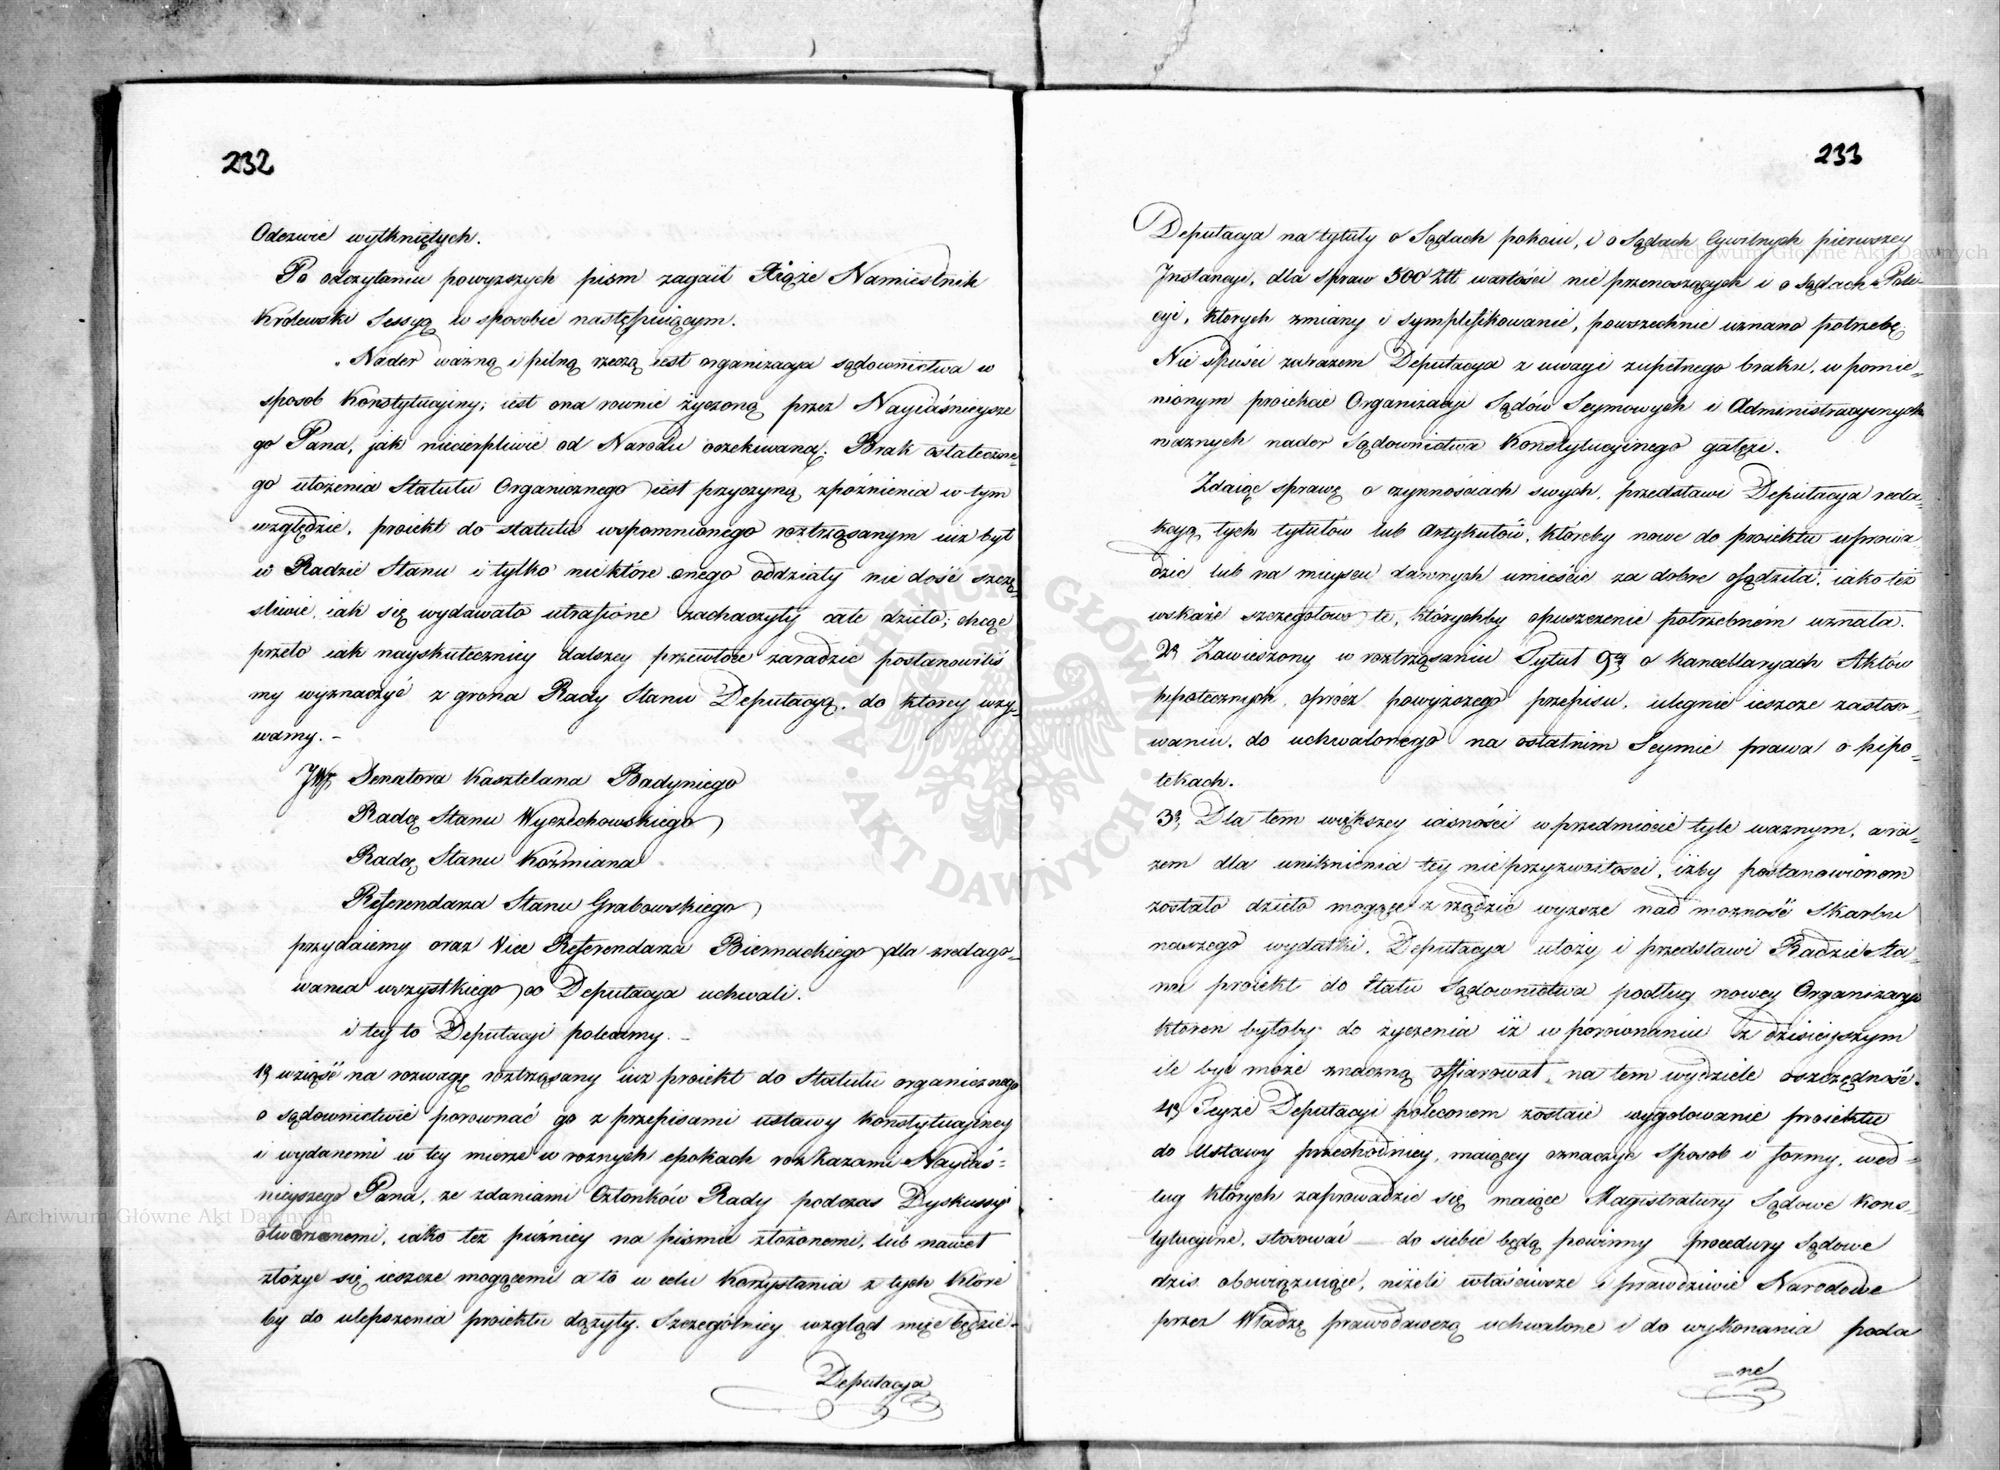 232
Odezwie wytkniętych.
Po odczytaniu powyższych pism zagaił Xiąże Namiestnik
Królewski Sessyą w sposobie następuiącym.
„Nader ważną i pilną rzeczą iest organizacya sądownictwa w
sposob Konstytucyiny; iest ona rownie życzoną przez Nayiaśnieysze
go Pana, jak niecierpliwie od Narodu oczekiwaną. Brak ostateczne-
go ułożenia Statutu Organicznego iest przyczyną zpóźnienia w tym
względzie, proiekt do statutu wspomnionego roztrząsanym iuż był
w Radzie Stanu i tylko niektóre onego oddziały nie dość szczę-
śliwie, iak się wydawało utrafione zachaczyły całe dzieło; chcąc
przeto iak nayskuteczniey dalszey przewłoce zaradzić postanowiliś
my wyznaczyć z grona Rady Stanu Deputacyą, do ktorey wzy-
wamy. –
JWW. Senatora Kasztelana Badyniego
Radcę Stanu Wyczechowskiego
Radcę Stanu Koźmiana
Referendarza Stanu Grabowskiego
przydaiemy oraz Vice Referendarza Biernackiego dla zredago-
wania wszystkiego co Deputacya uchwali.
i tey to Deputacyi polecamy. –
1º wziąść na rozwagę roztrząsany iuz proiekt do Statutu organicznego
o sądownictwie porownać go z przepisami ustawy Konstytucyiney
i wydanemi w tey mierze w roznych epokach rozkazami Nayiaś-
nieyszego Pana, ze zdaniami Członków Rady podczas Dyskussyi
otworzonemi, iako tez puźniey na pismie złożonemi, lub nawet
złożyć się ieszcze mogącemi a to w celu korzystania z tych które
by do ulepszenia proiektu dążyły. Szczegolniey wzgląd mieć będzie
Deputacya
233
Deputacya na tytuły o Sądach pokoiu, i o Sądach Cywilnych pierwszey
Instancyi, dla spraw 500 Złł wartości nie przenoszących i o sądach Poli-
cyi, których zmiany i symplifikowanie, powszechnie uznano potrzebę.
Nie spuści zarazem Deputacya z uwagi zupełnego braku, w pomie-
nionym proiekcie Organizacyi Sądów Seymowych i Administracyinych
waznych nader Sądownictwa Konstytucyinego gałęzi.
Zdaiąc sprawę o czynnościach swych, przedstawi Deputacya reda-
kcyą tych tytułów lub Artykułów, któreby nowe do proiektu wprowa-
dzić lub na mieyscu dawnych umieścić za dobre osądziła, iako też
wskaże szczegołowo te, którychby opuszczenie potrzebném uznała.
2º Zawieszony w roztrząsaniu Tytuł 9ty o Kancellaryach Aktów
hipotecznych oprócz powyższego przepisu, ulegnie ieszcze zastoso-
waniu, do uchwalonego na ostatnim Seymie prawa o hipo-
tekach.
3º Dla tem większey iasności w przedmiocie tyle waznym, a ra-
zem dla uniknienia tey nieprzyzwoitości, iżby postanowionem
zostało dzieło mogące zrządzić wyzsze nad mozność Skarbu
naszego wydatki, Deputacya ułoży i przedstawi Radzie Sta-
nu proiekt do Etatu Sądownictwa podług nowey Organizacyi
ktoren byłoby do życzenia iż w porównaniu z dzisieyszym
ile być może znaczną offiarował na tem wydziele oszczędność.
4º Teyże Deputacyi poleconem zostaie wygotowanie proiektu
do Ustawy przechodniey, maiącey oznaczyć sposób i formy, wed-
ług których zaprowadzić się maiące Magistratury Sądowe Kons-
tytucyine, stosować do siebie będą powinny procedury Sądowe
dziś obowiązuiące, niżeli właściwsze i prawdziwie Narodowe
przez Władzę prawodawczą uchwalone i do wykonania poda
–ne